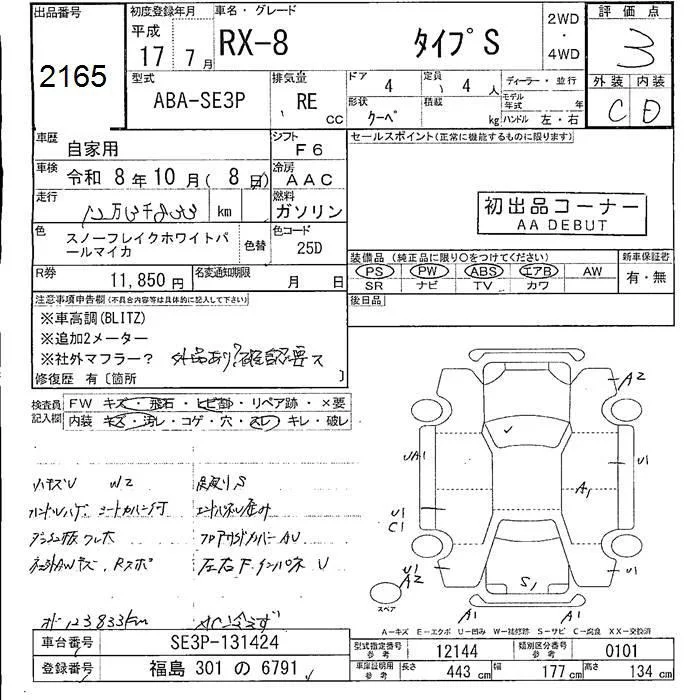 出品番号
2165
初度登録年月
平成 17年 7月
車名・グレード
RX-8 タイプS
2WD
・
4WD
評価点
3
外装 内装
C D
型式
ABA-SE3P
排気量
RE
CC
ドア
4
定員
4 人
形状
クーペ
積載
kg
ディーラー・並行
モデル年式 年
ハンドル 左・右
車歴
自家用
シフト
F6
車検
令和 8年 10月( 8日)
冷房
AAC
走行
km
燃料
ガソリン
色
スノーフレイクホワイトパールマイカ
色替
色コード
25D
R券
11,850 円
名変通知期限
月 日
セールスポイント(正常に機能するものに限ります)
初出品コーナー
AA DEBUT
装備品(純正品に限り○をつけてください)
PS PW ABS エアB AW
SR ナビ TV カワ
新車保証書
有・無
後日品
注意事項申告欄(不具合内容等は具体的に記入して下さい)
※車高調(BLITZ)
※追加2メーター
※社外マフラー?
修復歴 有〔箇所 〕
検査員記入欄
FW キズ・飛石・ヒビ割・リペア跡・×要
内装 キズ・汚レ・コゲ・穴・スレ・キレ・破レ
W2
シートカバー付
オド 123833km
A2
UA1
U1
A1
U1
C1
U1
A2
S1
A1
A1
スペア
A-キズ E-エクボ U-凹み W-補修跡 S-サビ C-腐食 XX-交換済
車台番号
SE3P-131424
登録番号
福島 301 の 6791
型式指定番号 参考
12144
類別区分番号 参考
0101
車庫証明用 参考
長さ 443 cm
幅 177 cm
高さ 134 cm